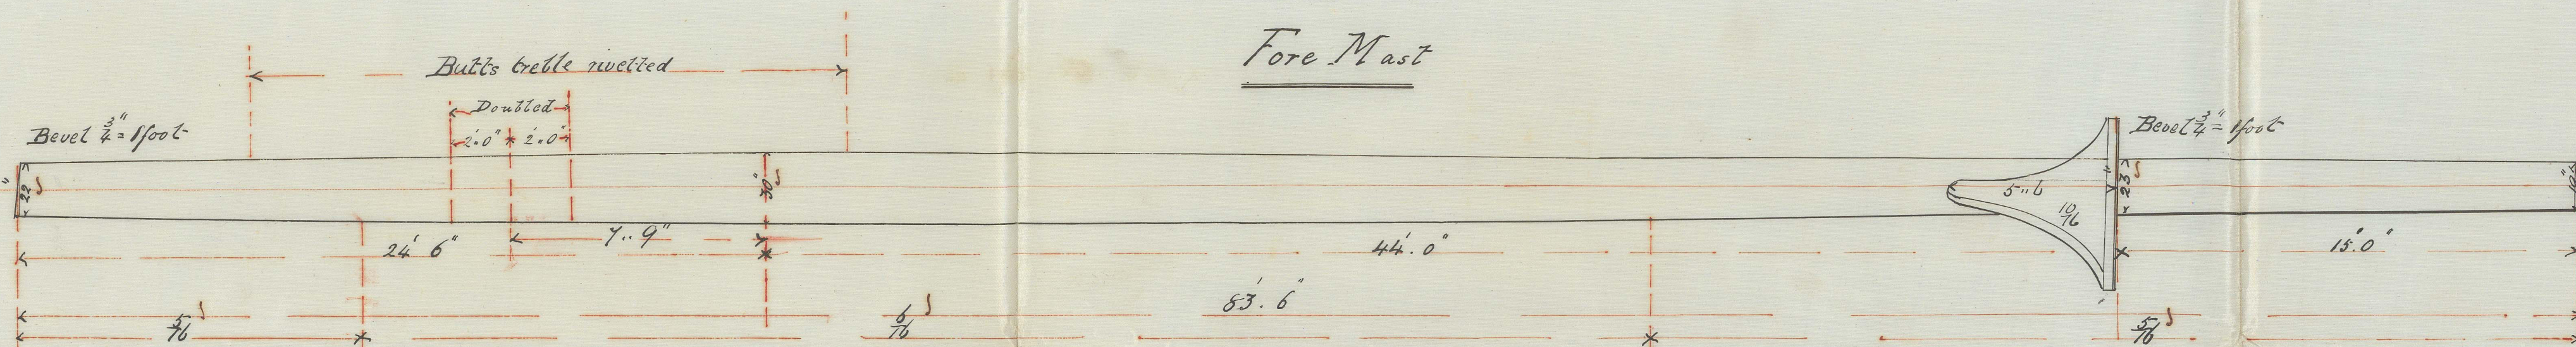 Fore Mast
Butts treble rivetted
Doubled
2'.0" 2'.0"
Bevel 3/4" = 1 foot
Bevel 3/4" = 1 foot
22
30"
5"6
10/16
23
7..9"
24' 6"
44'.0"
15'.0"
83'.6"
5/16
6/16
5/16